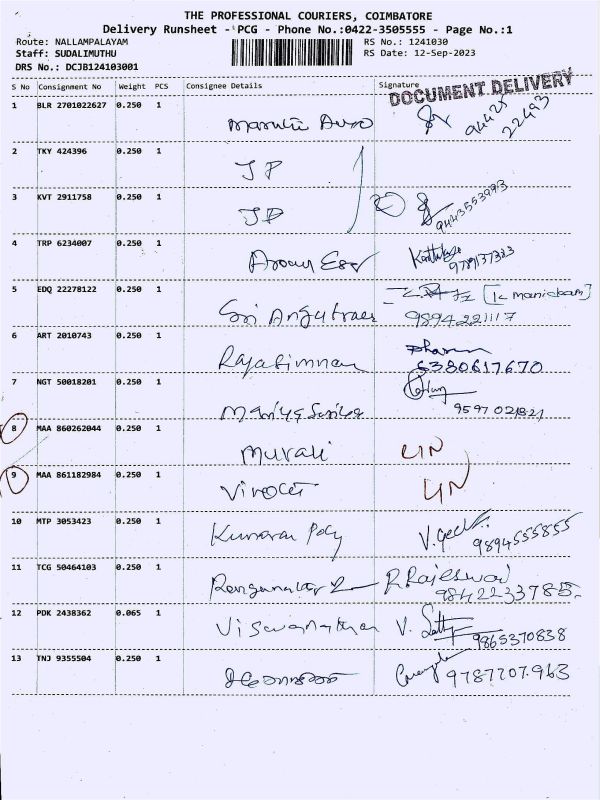 THE PROFESSIONAL COURIERS, COIMBATORE
Delivery Runsheet - PCG - Phone No.:0422-3505555 - Page No.:1
Route: NALLAMPALAYAM RS No.: 1241030
Staff: SUDALIMUTHU RS Date: 12-Sep-2023
DRS No.: DCJB124103001
S No Consignment No Weight PCS Consignee Details Signature
DOCUMENT DELIVERY
1 BLR 2701022627 0.250 1
2 TKY 424396 0.250 1 JP
3 KVT 2911758 0.250 1 JP
9443553993
4 TRP 6234007 0.250 1
9789137323
5 EDQ 22278122 0.250 1 Sri [K Manickam]
9894221117
6 ART 2010743 0.250 1
6380617670
7 NGT 50018201 0.250 1
8 MAA 860262044 0.250 1 Murali
9 MAA 861182984 0.250 1
10 MTP 3053423 0.250 1 Kumaran Poly
9894555855
11 TCG 50464103 0.250 1 R. Rajeswari
9842233785
12 PDK 2438362 0.065 1 Viswanathan V.
9865370838
13 TNJ 9355504 0.250 1 9787707963